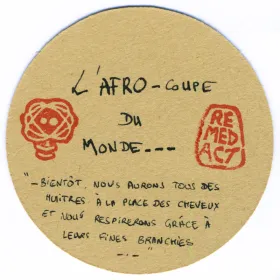 L'AFRO-COUPE
DU
MONDE---
RE
MED
ACT
"-BIENTÔT, NOUS AURONS TOUS DES
HUÎTRES À LA PLACE DES CHEVEUX
ET NOUS RESPIRERONS GRÂCE À
LEURS FINES BRANCHIES